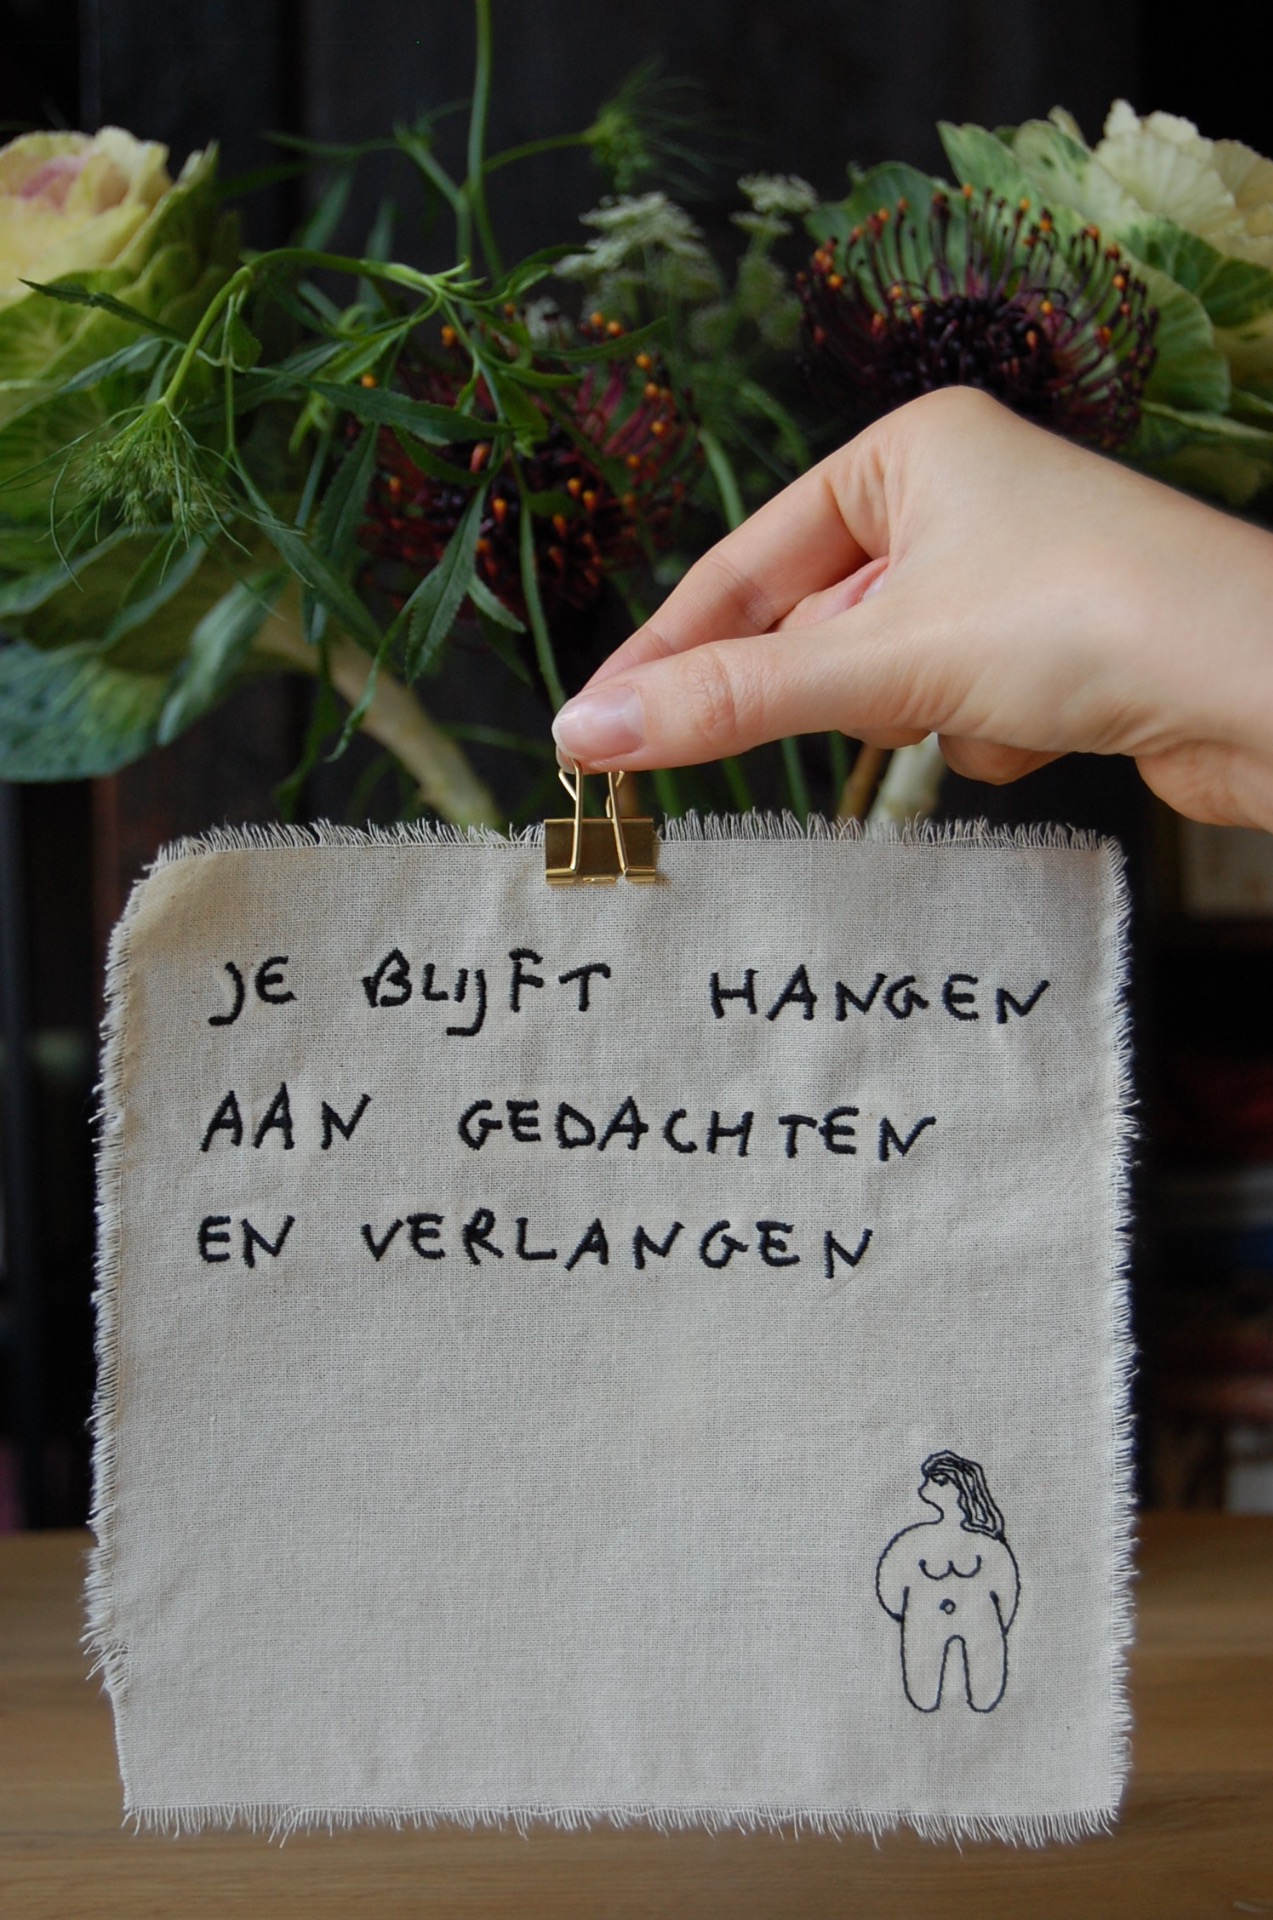 JE BLIJFT HANGEN
AAN GEDACHTEN
EN VERLANGEN